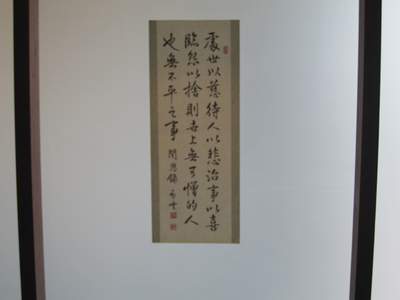 處世以慈待人以悲治事以喜
臨怨以捨則世上無可憎的人
也無不平之事